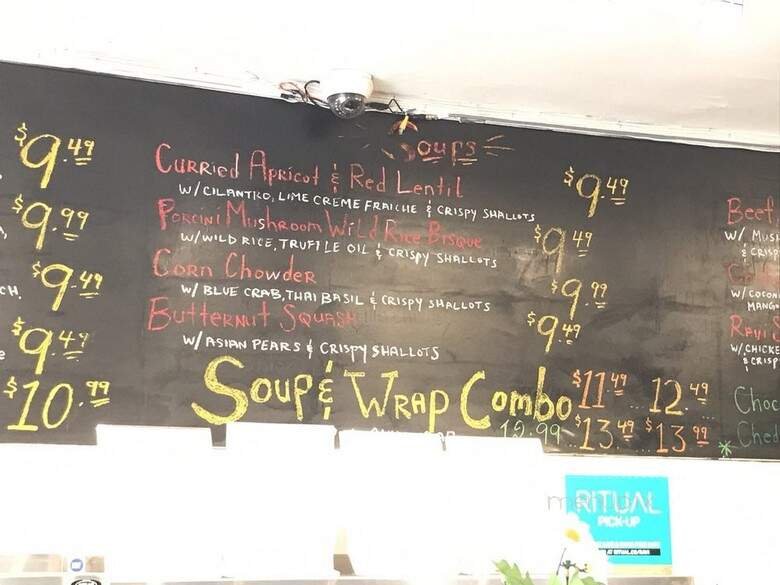 Soups
$9.49
Curried Apricot & Red Lentil $9.49
w/ CILANTRO, LIME CREME FRAICHE & CRISPY SHALLOTS
$9.99
Porcini Mushroom Wild Rice Bisque $9.49
w/ WILD RICE, TRUFFLE OIL & CRISPY SHALLOTS
$9.49
Corn Chowder $9.99
w/ BLUE CRAB, THAI BASIL & CRISPY SHALLOTS
$9.49
Butternut Squash $9.49
w/ ASIAN PEARS & CRISPY SHALLOTS
$10.99
Soup & Wrap Combo $11.49 .. 12.49
12.99 .. $13.49 $13.99
Beet
w/ MUSH
& CRISP
w/ COCON
MANGO
w/ CHICKE
& CRISP
Choc
Ched
RITUAL
PICK-UP